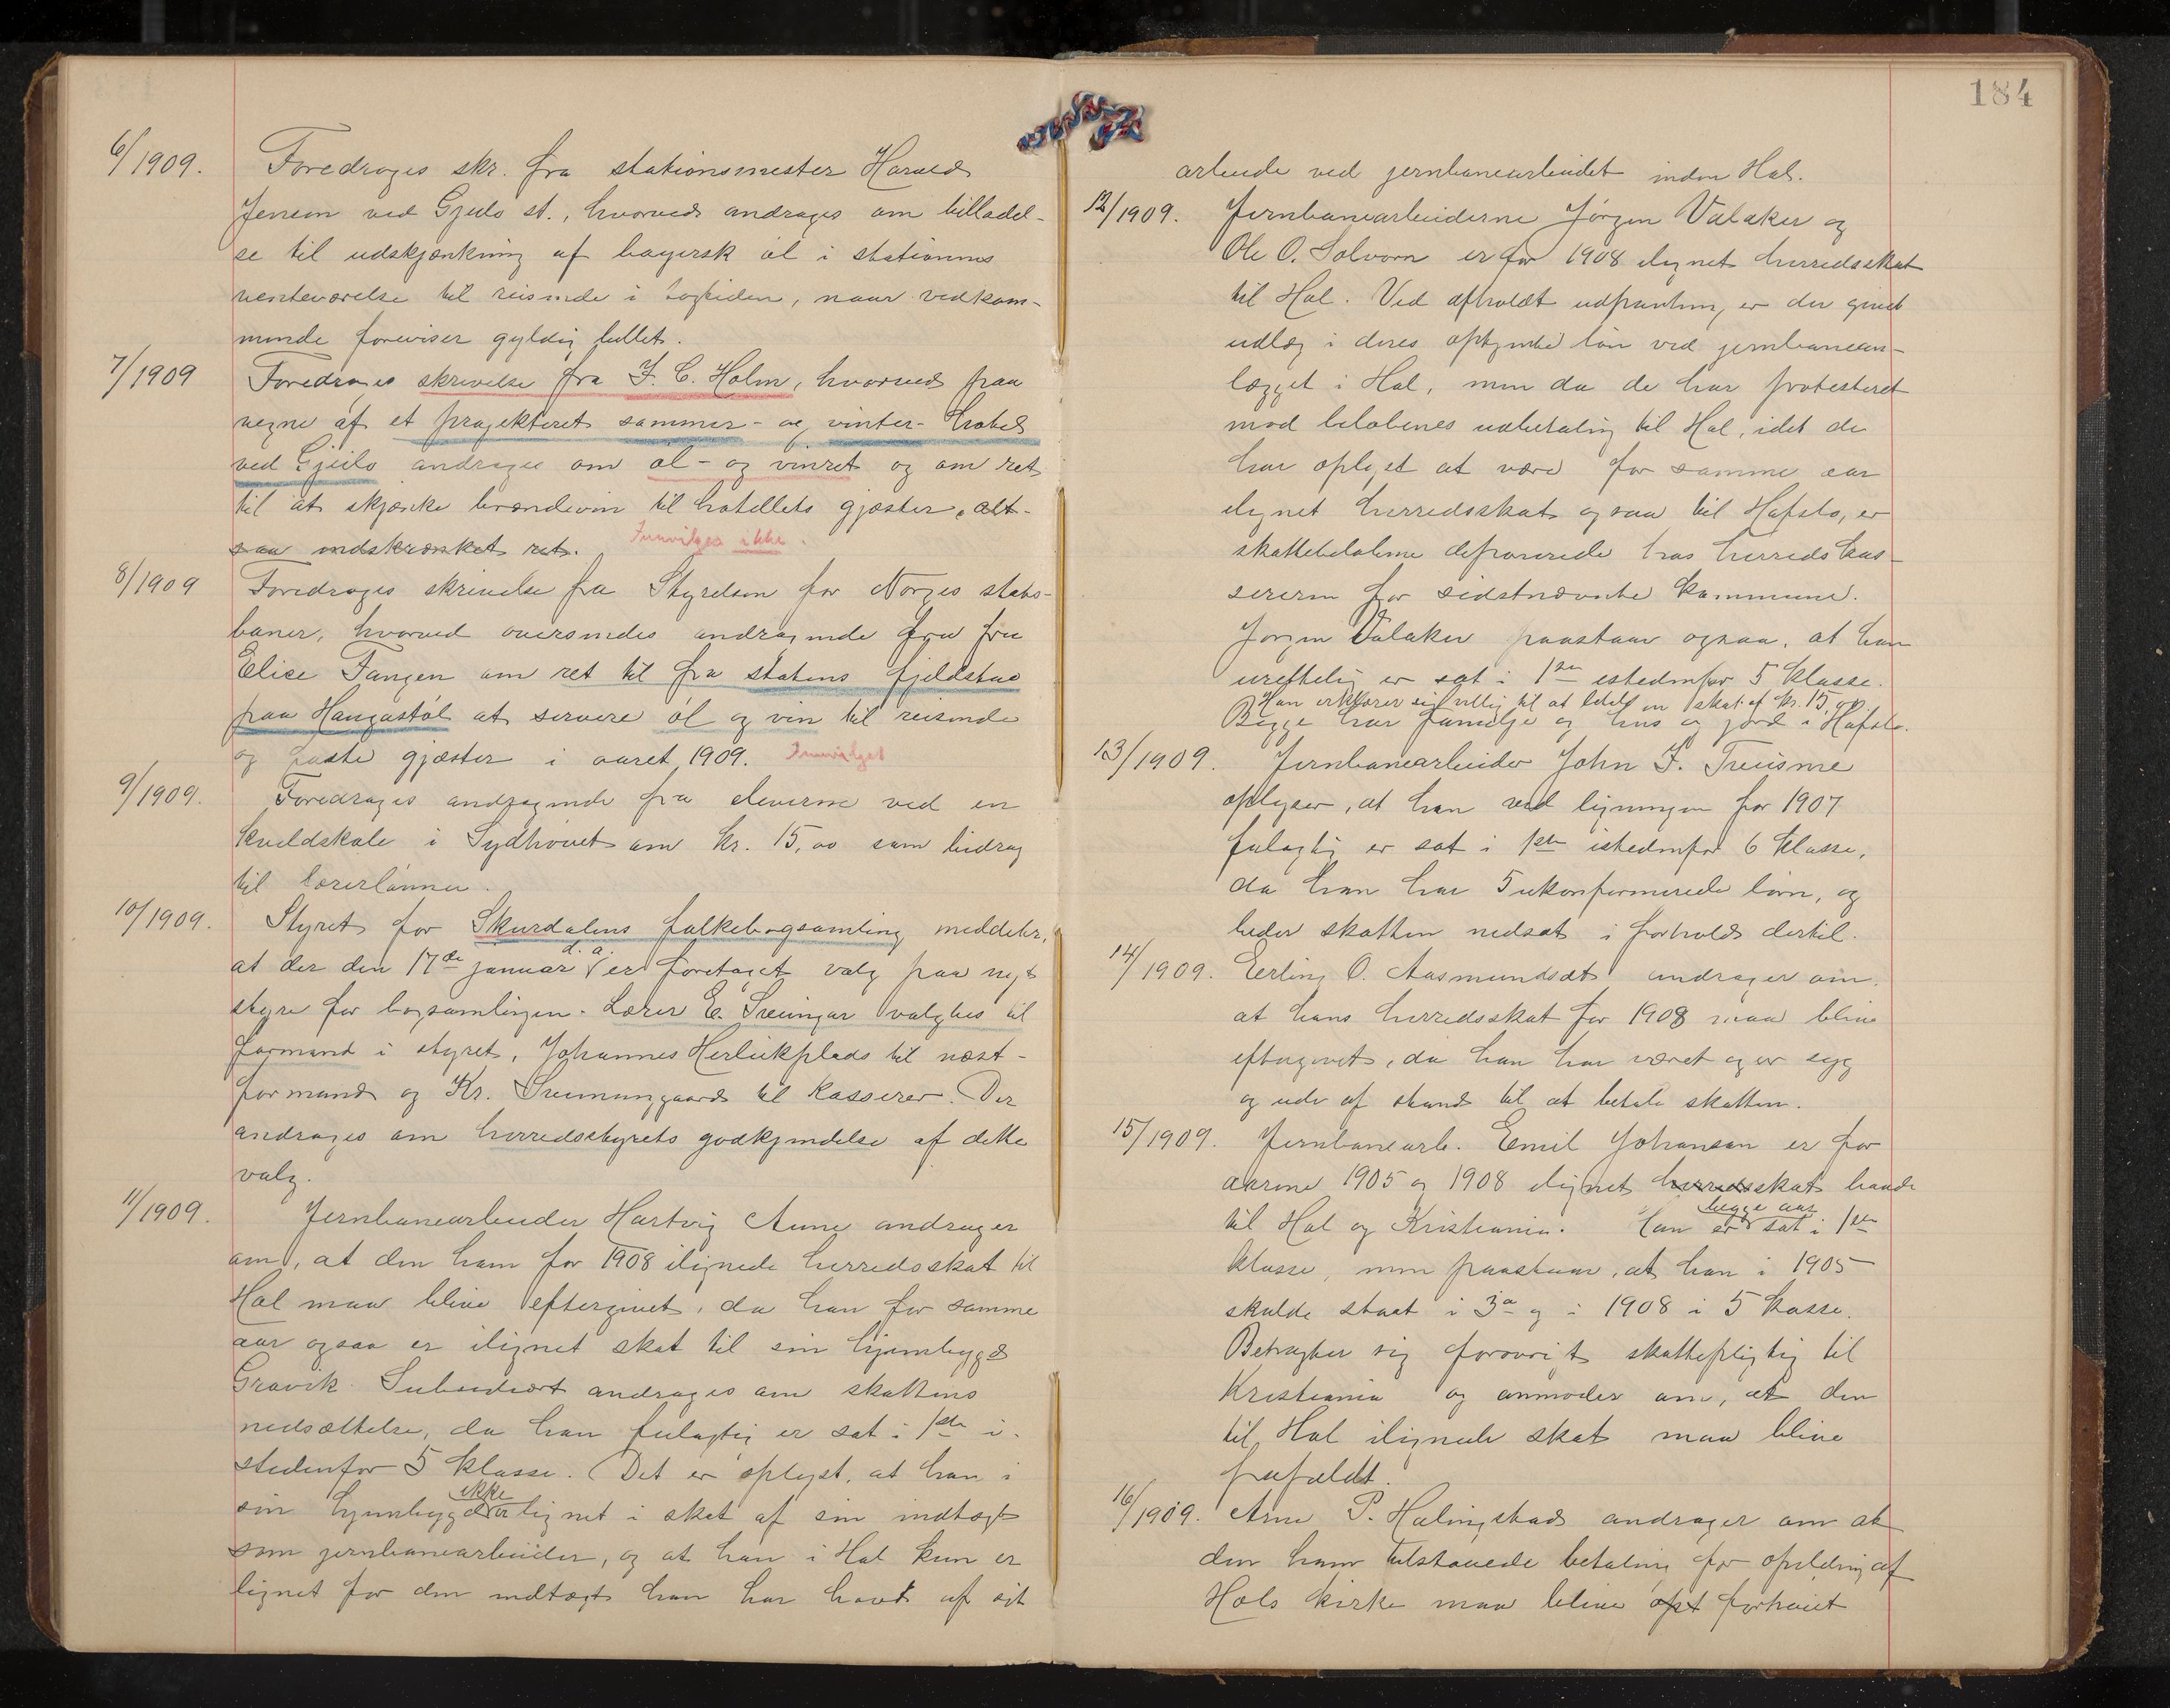 6/1909. Foredrages skr. fra stationsmester Harald
Jensen ved Gjeilo st., hvorved andrages om tilladel-
se til udskjænkning af bayersk øl i stationens
venteværelse til reisende i togtiden, naar vedkom-
mende foreviser gyldig billet.
7/1909 Foredrages skrivelse fra J. C. Holm, hvorved paa
vegne af et projekteret sommer- og vinter- hotel
ved Gjeilo andrages om øl- og vinret og om ret
til at skjænke brændevin til hotellets gjæster, alt-
saa indskrænket ret. Innvilges ikke.
8/1909 Foredrages skrivelse fra Styrelsen for Norges stats-
baner, hvorved oversendes andragende fra fru
Elise Fangen om ret til fra statens fjeldstue
paa Haugastøl at servere øl og vin til reisende
og faste gjæster i aaret 1909. Innvilget
9/1909. Foredrages andragende fra eleverne ved en
kveldskole i Sydhovet om kr. 15,00 som bidrag
til lærerlønnen.
10/1909. Styret for Skurdalens folkebogsamling meddeler,
at der den 17de januar d. a. er foretaget valg paa nyt
styre for bogsamlingen. Lærer E. Sreingar valgtes til
formand i styret, Johannes Herleikplads til næst-
formand og Kr. Sreunungaard til kasserer. Der
andrages om herredsstyrets godkjendelse af dette
valg.
11/1909. Jernbanearbeider Hartvig Aune andrager
om, at den ham for 1908 ilignede herredsskat til
Hol maa blive eftergivet, da han for samme
aar ogsaa er ilignet skat til sin hjembygd
Gravik. Subsidiært andrages om skattens
nedsættelse, da han feilagtig er sat i 1ste i-
stedenfor 5 klasse. Det er oplyst, at han i
sin hjembygd er ikke lignet i skat af sin indtægt
som jernbanearbeider, og at han i Hol kun er
lignet for den indtægt han har havt af sit
184
arbeide ved jernbanearbeidet inden Hol.
12/1909. Jernbanearbeiderne Jørgen Valaker og
Ole O. Solvorn er for 1908 ilignet herredsskat
til Hol. Ved afholdt udpantning er der givet
udlæg i deres optjente løn ved jernbanean-
lægget i Hol, men da de har protesteret
mod beløbenes udbetaling til Hol, idet de
har oplyst at være for samme aar
ilignet herredsskat ogsaa til Hafslo, er
skattebeløbene deponerede hos herredskas-
sereren for sidstnævnte kommune.
Jørgen Valaker paastaar ogsaa, at han
urettelig er sat i 1ste istedenfor 5 klasse.
Han erklærer sig villig til at betale en skat af kr. 15,00.
Begge har familje og hus og jord i Hafslo.
13/1909. Jernbanearbeider John J. Treisme
oplyser, at han ved ligningen for 1907
feilagtig er sat i 1ste istedenfor 6 klasse,
da han har 5 ukonfirmerede børn, og
beder skatten nedsat i forhold dertil.
14/1909. Eerling O. Aasmundsæt andrager om,
at hans herredsskat for 1908 maa blive
eftergivet, da han har været og er syg
og ude af stand til at betale skatten.
15/1909. Jernbanearb. Emil Johansen er for
aarene 1905 og 1908 ilignet herredsskat baade
til Hol og Kristiania. Han er begge aar sat i 1ste
klasse, men paastaar, at han i 1905
skulde staat i 3die og i 1908 i 5 kasse.
Betragter sig forøvrigt skattepligtig til
Kristiania og anmoder om, at den
til Hol ilignede skat maa blive
frafaldt.
16/1909. Arne P. Halingstad andrager om at
den ham tilstaaede betaling for opildning af
Hols kirke maa blive opt forhøiet